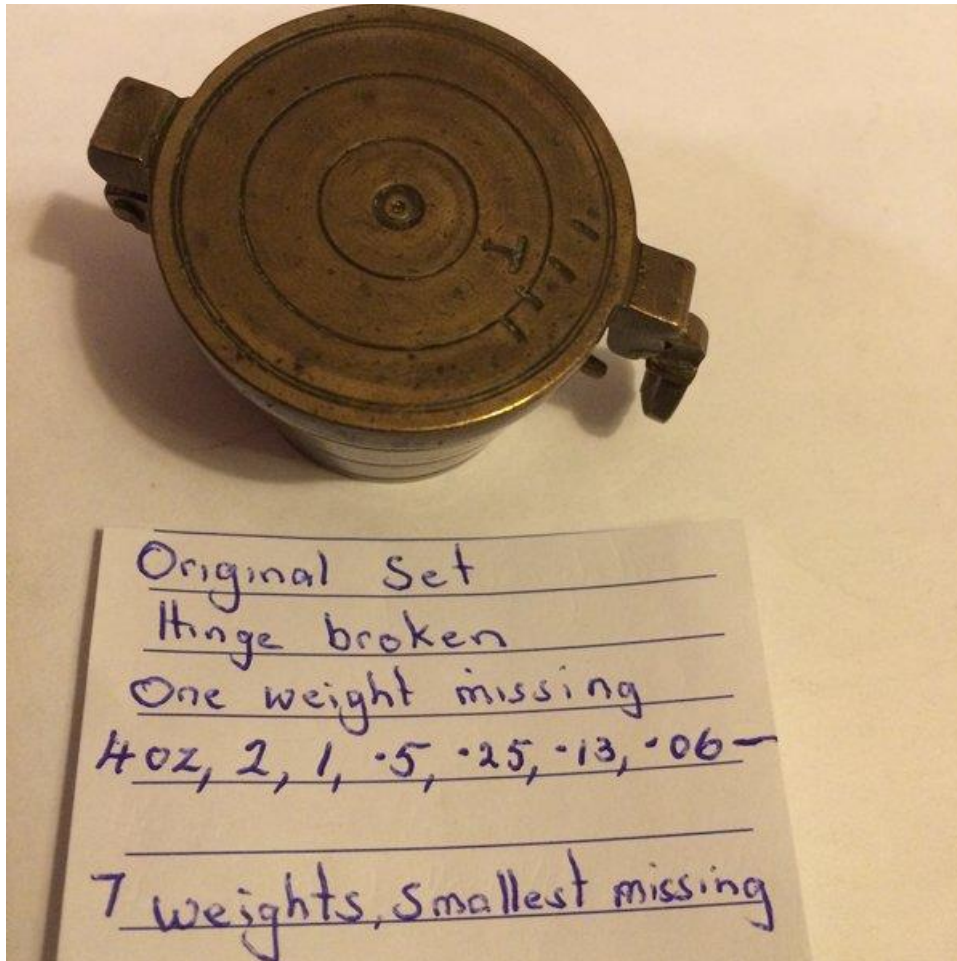 Original Set
Hinge broken
One weight missing
4oz, 2, 1, ·5, ·25, ·13, ·06—
7 weights, Smallest missing